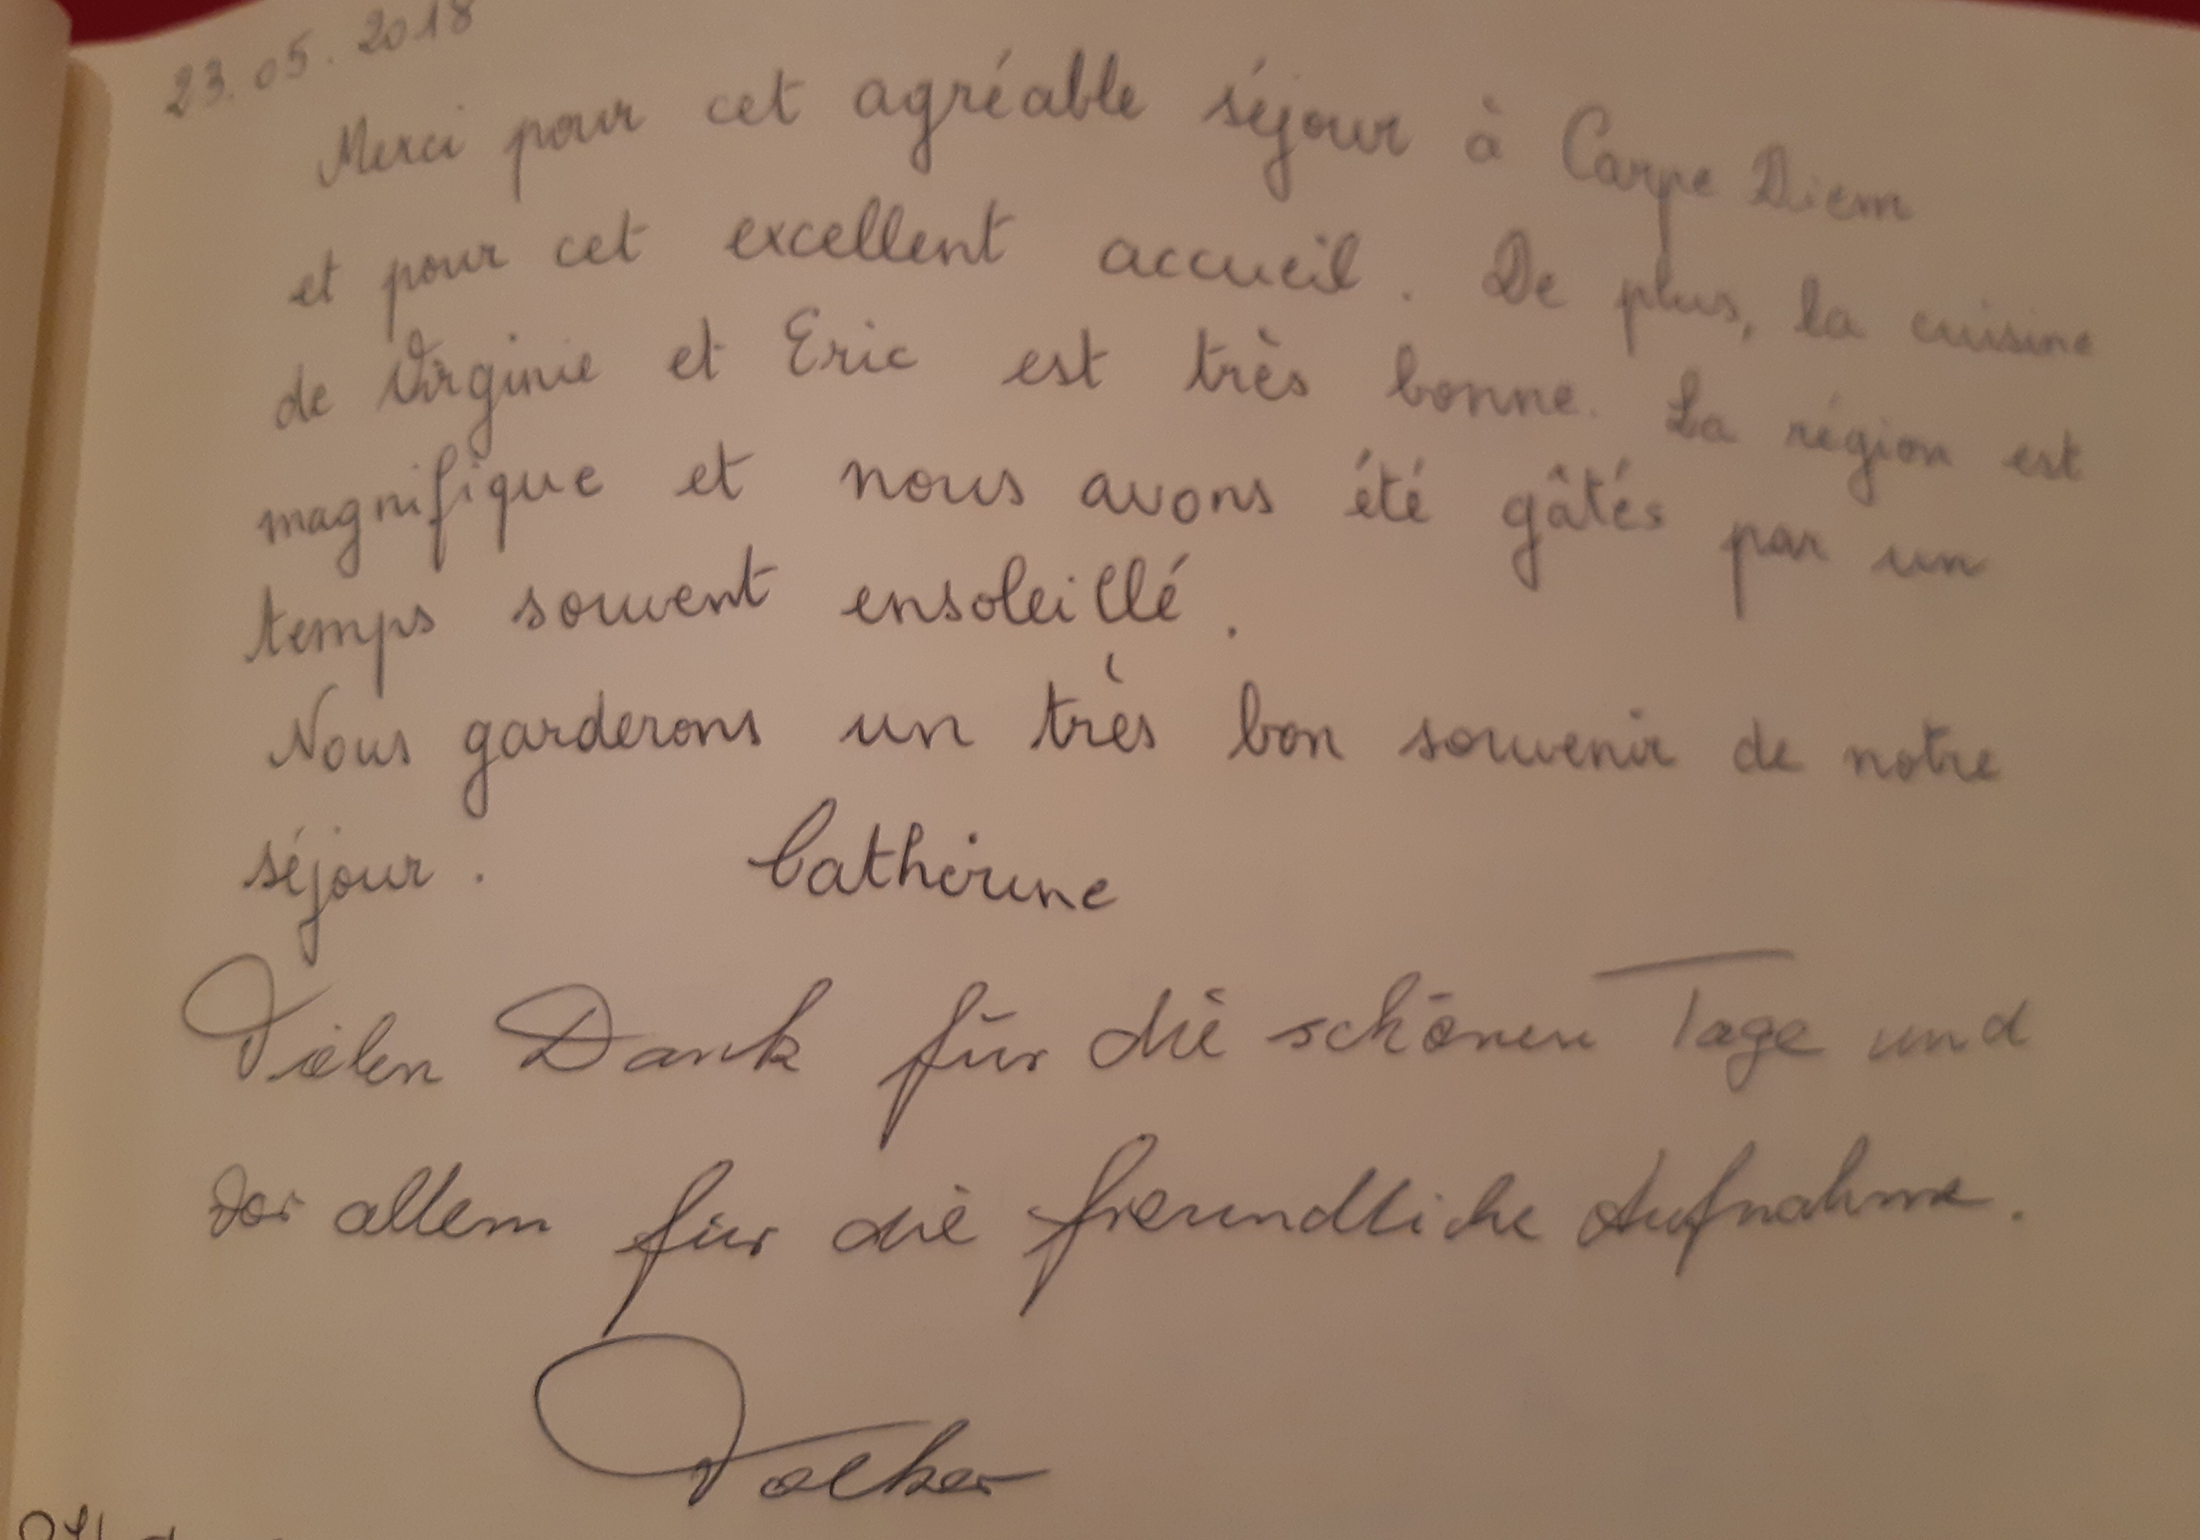 23.05.2018
Merci pour cet agréable séjour à Carpe Diem
et pour cet excellent accueil. De plus, la cuisine
de Virginie et Eric est très bonne. La région est
magnifique et nous avons été gâtés par un
temps souvent ensoleillé.
Nous garderons un très bon souvenir de notre
séjour. Catherine
Vielen Dank für die schönen Tage und
vor allem für die freundliche Aufnahme.
Volker